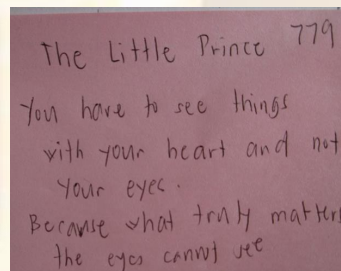 The Little Prince 779
You have to see things
with your heart and not
your eyes.
Because what truly matters
the eyes cannot see